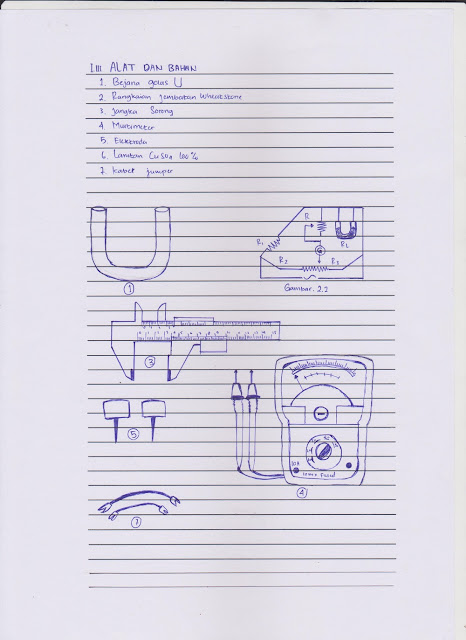 III ALAT DAN BAHAN
1. Bejana gelas U
2. Rangkaian Jembatan Wheatstone
3. Jangka Sorong
4. Multimeter
5. Elektroda
6. Larutan CuSO4 100%
7. Kabel jumper
R
R1
RL
G
R2
R3
Gambar. 2.2
1
3
5
4
7